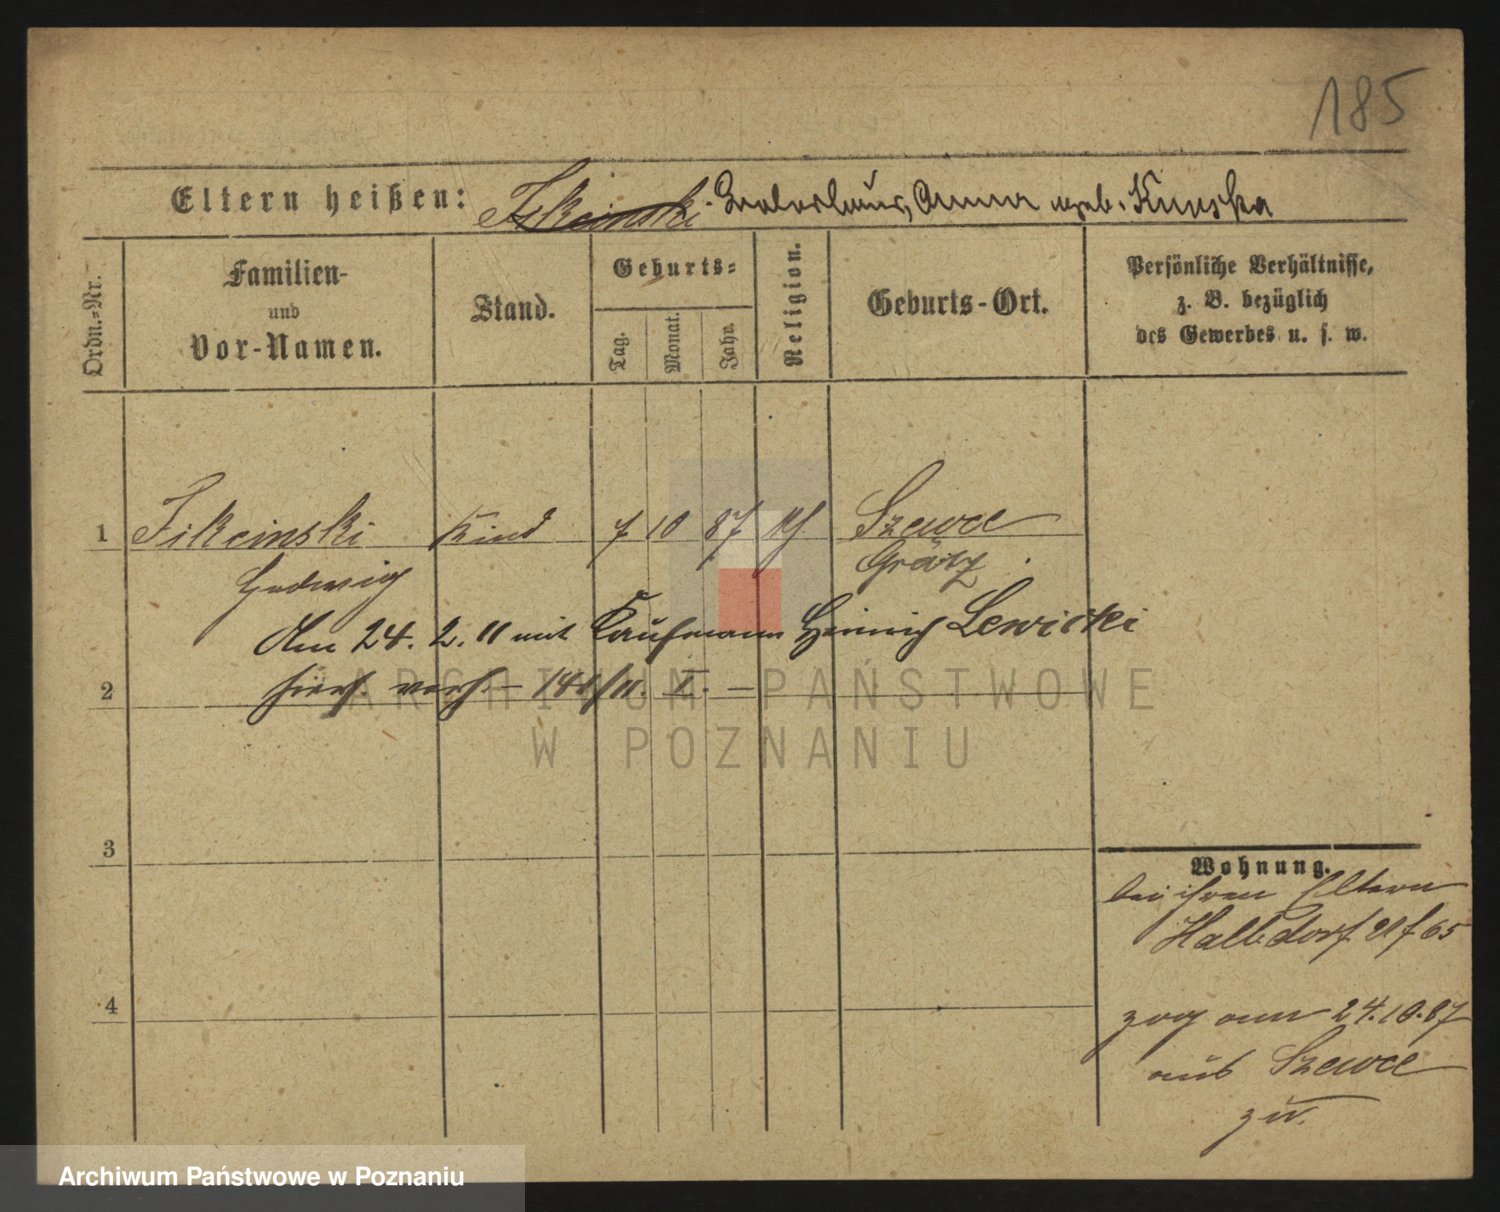 185
Eltern heißen: Fikcinski Anna geb. Kupska
Ordn.-Nr.
Familien-
und
Vor-Namen.
Stand.
Geburts-
Tag.
Monat.
Jahr.
Religion.
Geburts-Ort.
Persönliche Verhältnisse,
z. B. bezüglich
des Gewerbes u. s. w.
1 Fikcinski Kind 7 10 87 Szewce
Hedwig Grätz
Am 24. 2. 11 mit Kaufmann Heinrich Lewicki
2 hier verh. /11. I.
3
4
Wohnung.
bei ihren Eltern
Halbdorf 65
zog am 24.10.87
aus Szewce
zu.
ARCHIWUM PAŃSTWOWE
W POZNANIU
Archiwum Państwowe w Poznaniu